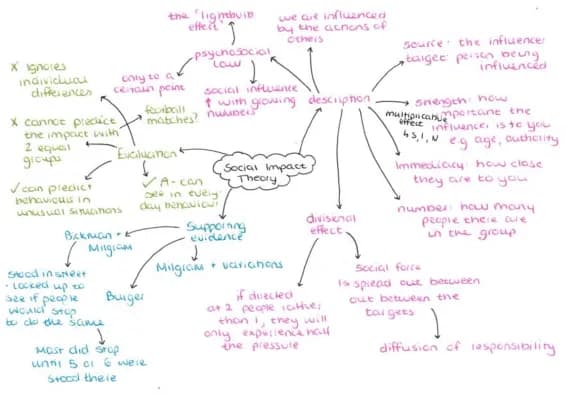 the "lightbulb
effect"
we are influenced
by the actions of
others
psychosocial
law
only to a
certain point
social influence
↑ with growing
numbers
description
source: the influencer
target: person being
influenced
strength: how
important the
influencer is to you
e.g age, authority
multiplicative
effect
↳ S, I, N
immediacy: how close
they are to you
number: how many
people there are
in the group
X ignores
individual
differences
X cannot predict
the impact with
2 equal
groups
football
matches?
Evaluation
✓ can predict
behaviour in
unusual situations
✓ A - can
see in every-
day behaviour
Social Impact
Theory
Supporting
evidence
Bickman +
Milgram
Milgram + variations
Burger
stood in street
- looked up to
see if people
would stop
to do the same
Most did stop
until 5 or 6 were
stood there
divisional
effect
if directed
at 2 people rather
than 1, they will
only experience half
the pressure
social force
is spread out between
out between the
targets
diffusion of responsibility